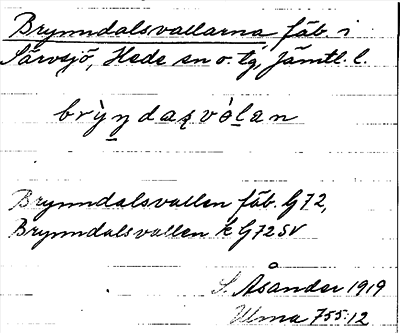 Brynndalsvallarna fäb. i
Särvsjö, Hede sn o. tg, Jämtl. l.
brỳn̲daʂvòl̲an
Brynndalsvallen fäb. G72,
Brynndalsvallen k G72SV
S. Åsander 1919
Ulma 755:12